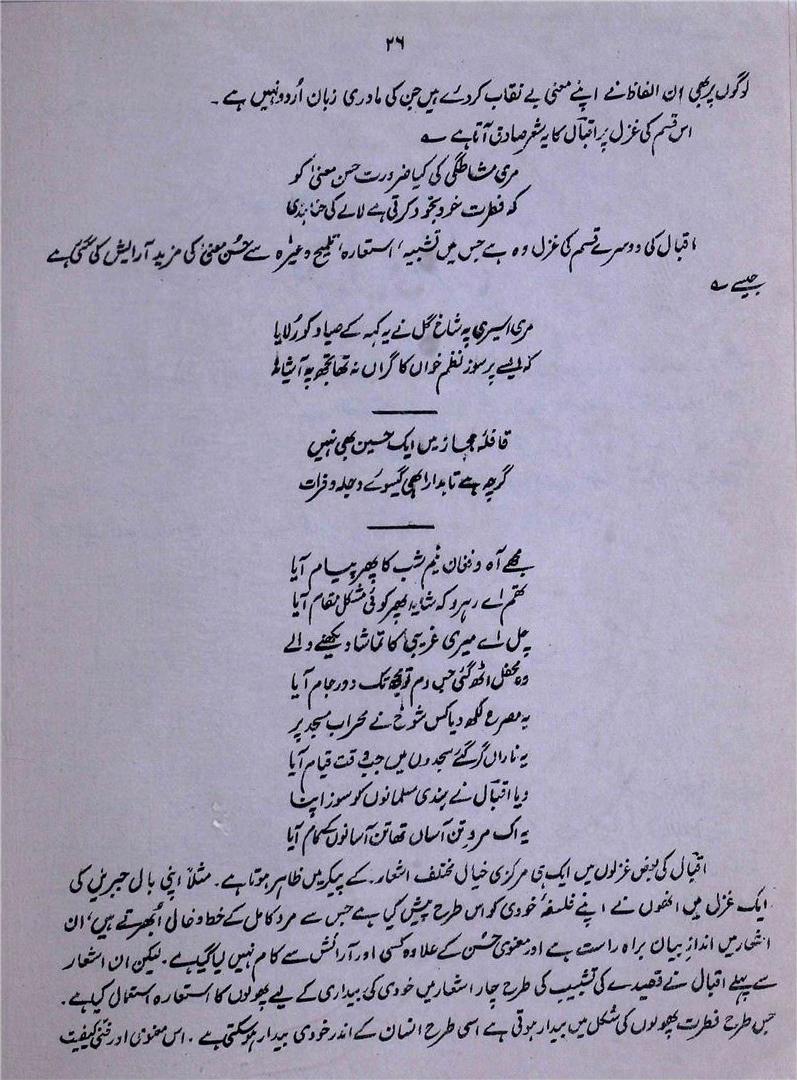 ۲۶
لوگوں پر بھی ان الفاظ نے اپنے معنی بے نقاب کردے ہیں جن کی مادری زبان اُردو نہیں ہے ۔
اس قسم کی غزل پر اقبال کا یہ شعر صادق آتا ہے ؎
مری مشاطگی کی کیا ضرورت حسن معنیٰ کو
کہ فطرت خود بخود کرتی ہے لالے کی حنا بندی
اقبال کی دوسرے قسم کی غزل وہ ہے جس میں تشبیہ ، استعارہ ، تلمیح وغیرہ سے حُسن معنیٰ کی مزید آرایش کی گئی ہے
جیسے ؎
مری اسیری پہ شاخ گل نے یہ کہہ کے صیاد کو رُلایا
کہ ایسے پرسوز نظم خواں کا گراں نہ تھا تجھ پہ آشیانہ
قافلۂ حجاز میں ایک حسین بھی نہیں
گرچہ ہے تابدار ابھی گیسوے دجلہ و فرات
مجھے آہ و فغان نیم شب کا پھر پیام آیا
تھم اے رہرو کہ شاید پھر کوئی مشکل مقام آیا
چل اے میری غریبی کا تماشا دیکھنے والے
وہ محفل اٹھ گئی جس دم تو مجھ تک دور جام آیا
یہ مصرع لکھ دیا کس شوخ نے محراب مسجد پر
یہ ناداں گر گئے سجدوں میں جب وقت قیام آیا
دیا اقبال نے ہندی مسلمانوں کو سوز اپنا
یہ اک مرد تن آساں تھا تن آسانوں کے کام آیا
اقبال کی بعض غزلوں میں ایک ہی مرکزی خیال مختلف اشعار کے پیکر میں ظاہر ہوتا ہے ۔ مثلاً اپنی بال جبریل کی
ایک غزل میں انھوں نے اپنے فلسفۂ خودی کو اس طرح پیش کیا ہے جس سے مرد کامل کے خط و خال اُبھرتے ہیں ، ان
اشعار میں انداز بیان براہ راست ہے اور معنوی حُسن کے علاوہ کسی اور آرائش سے کام نہیں لیا گیا ہے ۔ لیکن ان اشعار
سے پہلے اقبال نے قصیدے کی تشبیب کی طرح چار اشعار میں خودی کی بیداری کے لیے پھولوں کا استعارہ استعمال کیا ہے ۔
جس طرح فطرت پھولوں کی شکل میں بیدار ہوتی ہے اسی طرح انسان کے اندر خودی بیدار ہوسکتی ہے ۔ اس معنوی اور فنی کیفیت